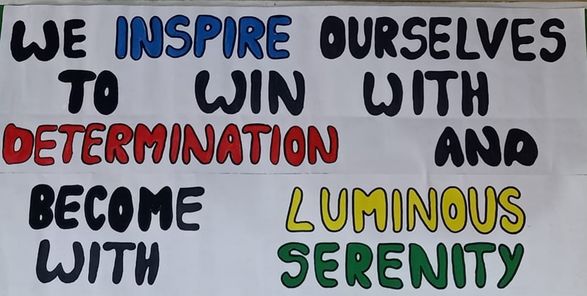 WE INSPIRE OURSELVES
TO WIN WITH
DETERMINATION AND
BECOME LUMINOUS
WITH SERENITY